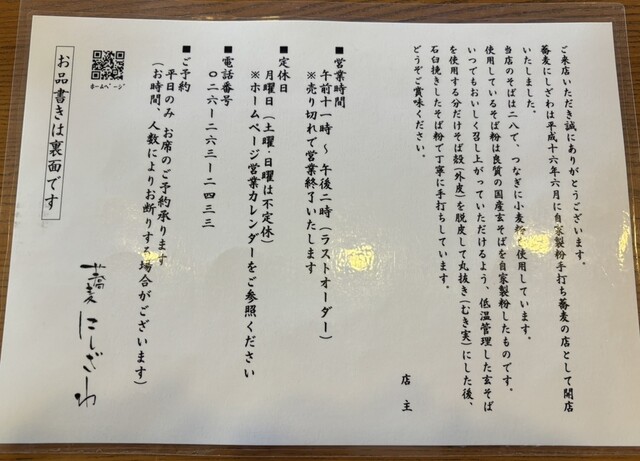 ご来店いただき誠にありがとうございます。
蕎麦にしざわは平成十六年六月に自家製粉手打ち蕎麦の店として開店
いたしました。
当店のそばは二八で、つなぎに小麦粉を使用しています。
使用しているそば粉は良質の国産玄そばを自家製粉したものです。
いつでもおいしく召し上がっていただけるよう、低温管理した玄そば
を使用する分だけそば殻(外皮)を脱皮して丸抜き(むき実)にした後、
石臼挽きしたそば粉で丁寧に手打ちしています。
どうぞご賞味ください。
店主
■営業時間
午前十一時 ～ 午後二時(ラストオーダー)
※売り切れで営業終了いたします
■定休日
月曜日(土曜・日曜は不定休)
※ホームページ営業カレンダーをご参照ください
■電話番号
〇二六－二六三－二四三三
■ご予約
平日のみ お席のご予約承ります
(お時間、人数によりお断りする場合がございます)
ホームページ
お品書きは裏面です
蕎麦 にしざわ